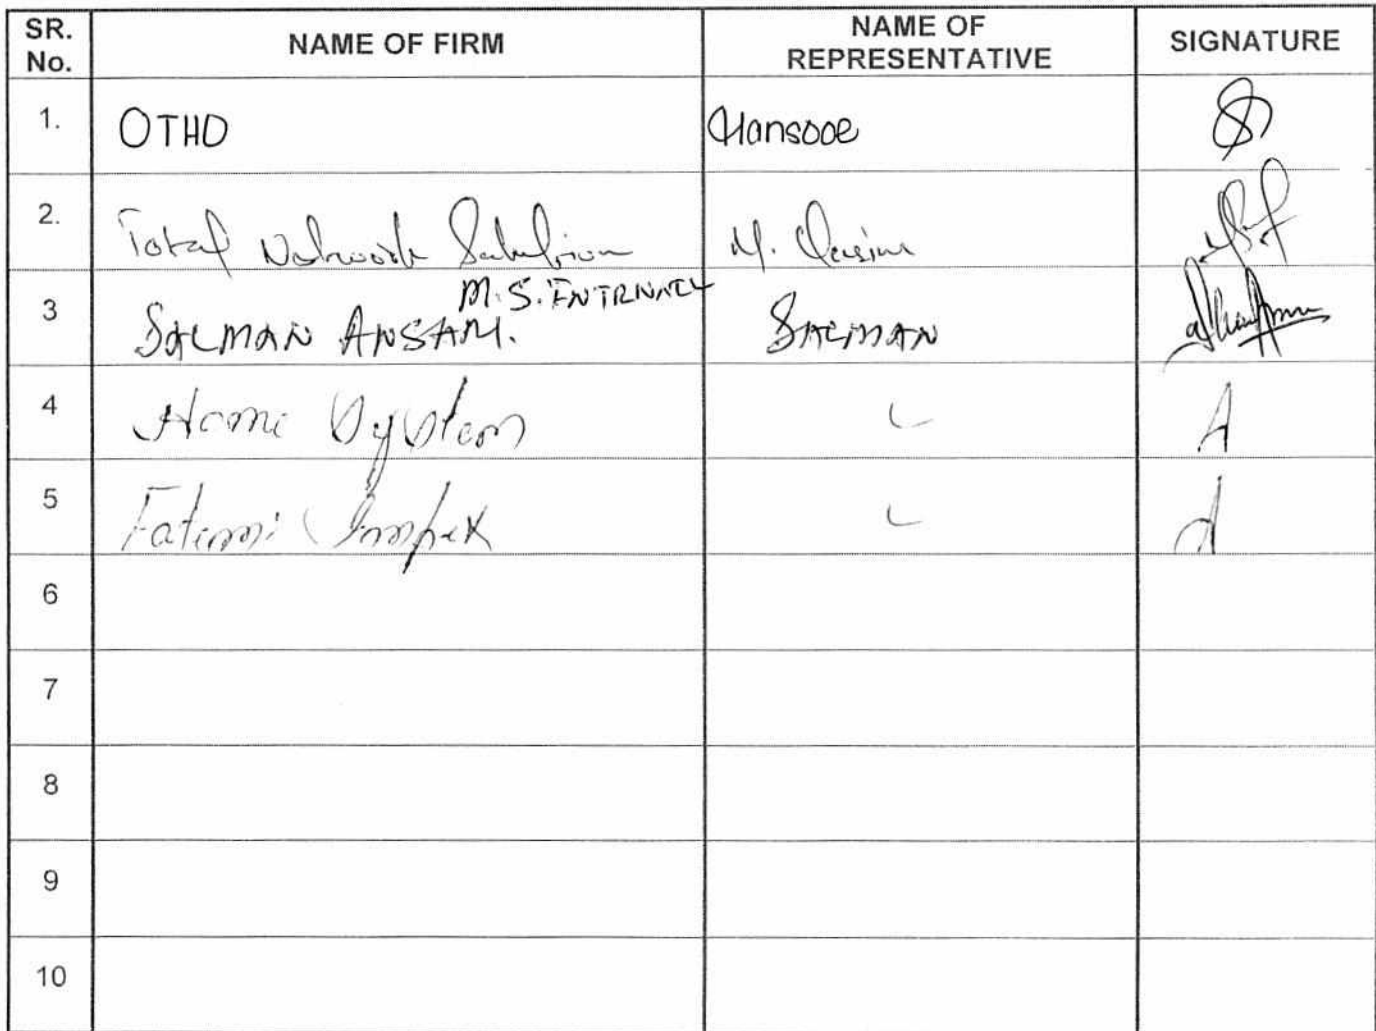 SR. No. NAME OF FIRM NAME OF REPRESENTATIVE SIGNATURE
1. OTHO Hansooe
2. Total Network Solution M. Qasim
3 M.S. ENTRNATL
SALMAN ANSARI. SALMAN
4 Home System
5 Fatemi Impex
6
7
8
9
10